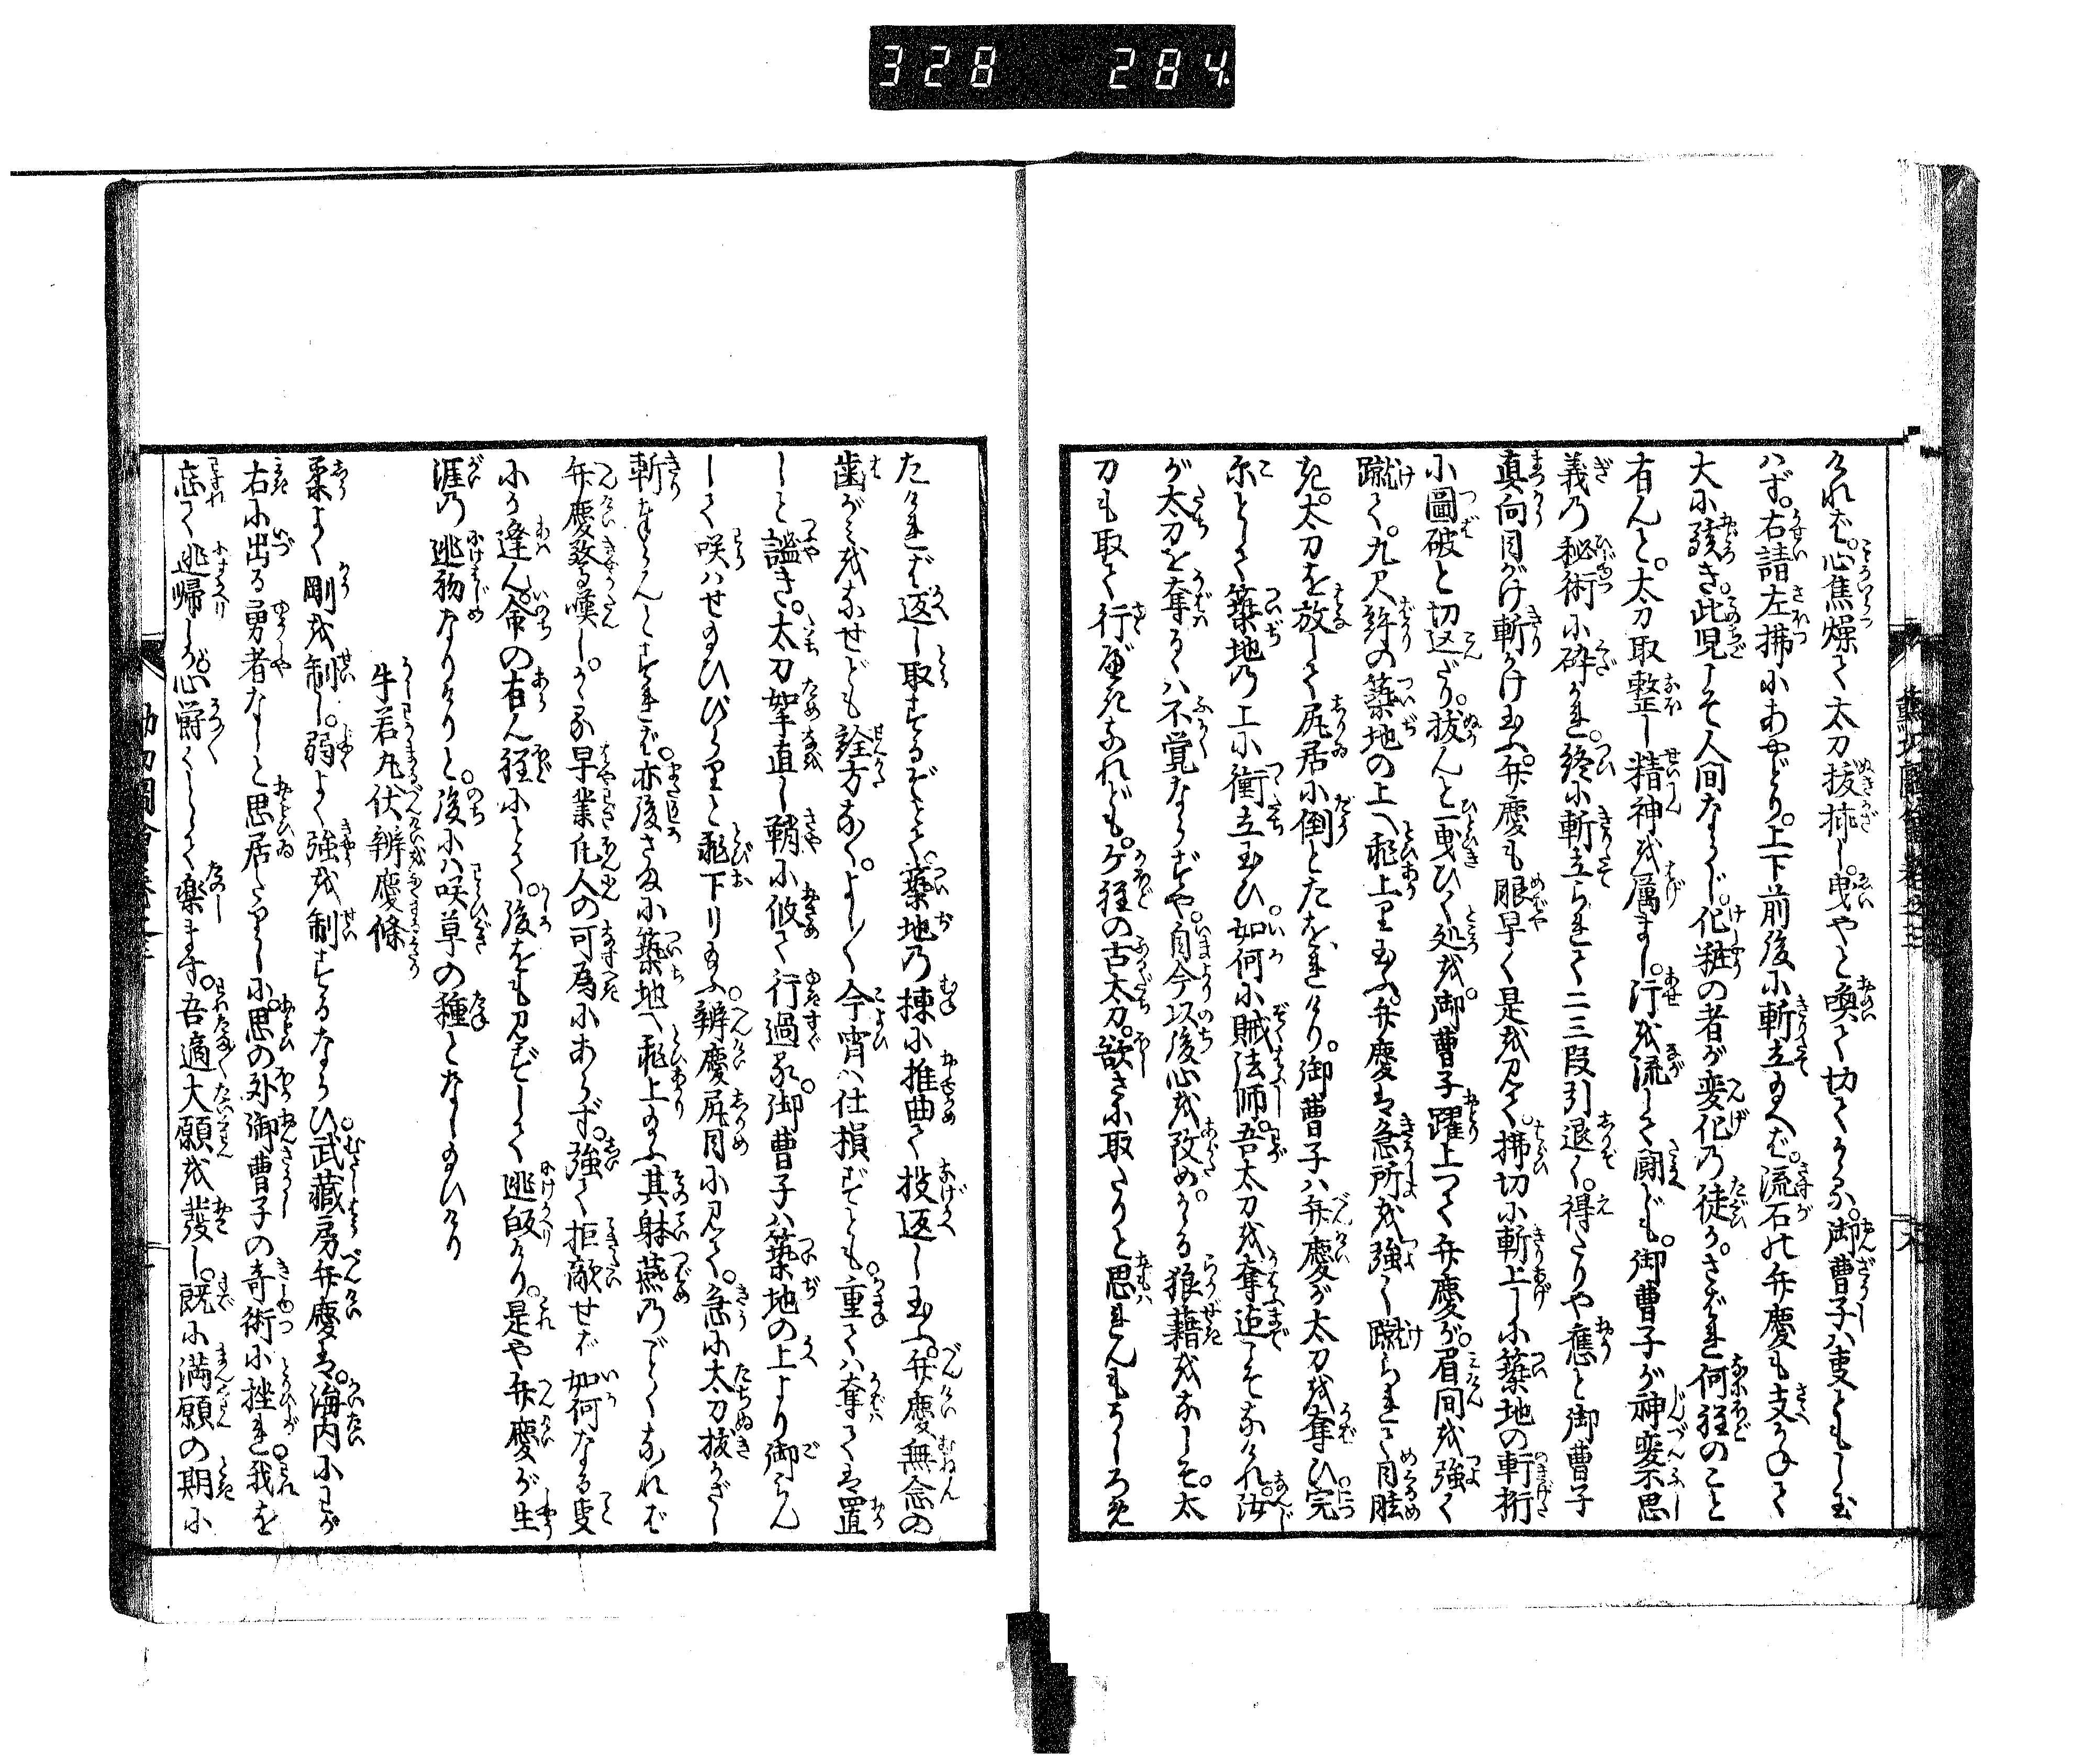 328 284
けれバ。心焦燥て太刀抜挿し。曳やと喚て切てかゝる。御曹子ハ事ともし玉
ハず。右請左拂にあやどり。上下前後に斬立給へバ。流石の弁慶も支かねて
大に駭き。此児こそ人間ならじ。化粧の者が変化の徒か。さばれ何程のこと
有んと。太刀取整し精神を属まし。汗を流して闘ども。御曹子が神変不思
義の秘術に砕かれ。終に斬立られて二三段引退く。得たりや應と御曹子
真向目がけ斬かけ玉ふ。弁慶も眼早く是を見て。拂切に斬上しに築地の軒桁
に圖破と切込だり。抜んと一曳ひく処を。御曹子躍上つて弁慶が。眉間を強く
蹴て。九尺許の築地の上へ飛上り玉ふ。弁慶ハ急所を強く蹴られて目眩
き。太刀を放して尻居に倒とたふれけり。御曹子ハ弁慶が太刀を奪ひ。完
尓として築地の上に衝立玉ひ。如何に賊法師。吾太刀を奪迄こそなけれ。汝
が太刀を奪るゝハ不覚ならずや。自今以後心を改め。かゝる狼藉をなしそ。太
刀も取て行べきなれども。ケ程の古太刀。欲さに取たりと思れんもうしろめ
たければ返し取するぞとて。築地の棟に推曲て投返し玉ふ。弁慶無念の
歯がみをなせども詮方なく。よし〱今宵ハ仕損ずとも。重てハ奪てこそ置
しと謐き。太刀拏直し鞘に攸て行過る。御曹子ハ築地の上より御らん
じて咲ハせ給ひひらりと飛下り給ふ。辨慶尻目に見て。急に太刀抜かざし
斬奉らんとすれば。亦後さまに築地へ飛上り給ふ其躰燕のごとくなれば
弁慶驚嘆し。かゝる早業凡人の可為にあらず。強て拒敵せば如何なる事
にか逢ん命の有ん程にとて。後をも見ずして逃皈けり。是や弁慶が生
涯の逃初なりけりと。後にハ咲草の種となし給ひけり
牛若丸伏辨慶條
柔よく剛を制し。弱よく強を制するならひ。武蔵房弁慶ハ。海内にわが
右に出る勇者なしと思居たりしに。思の外御曹子の奇術に挫れ。我を
忘て逃帰しが。心欝〱として楽ます。吾適大願を發し。既に満願の期に